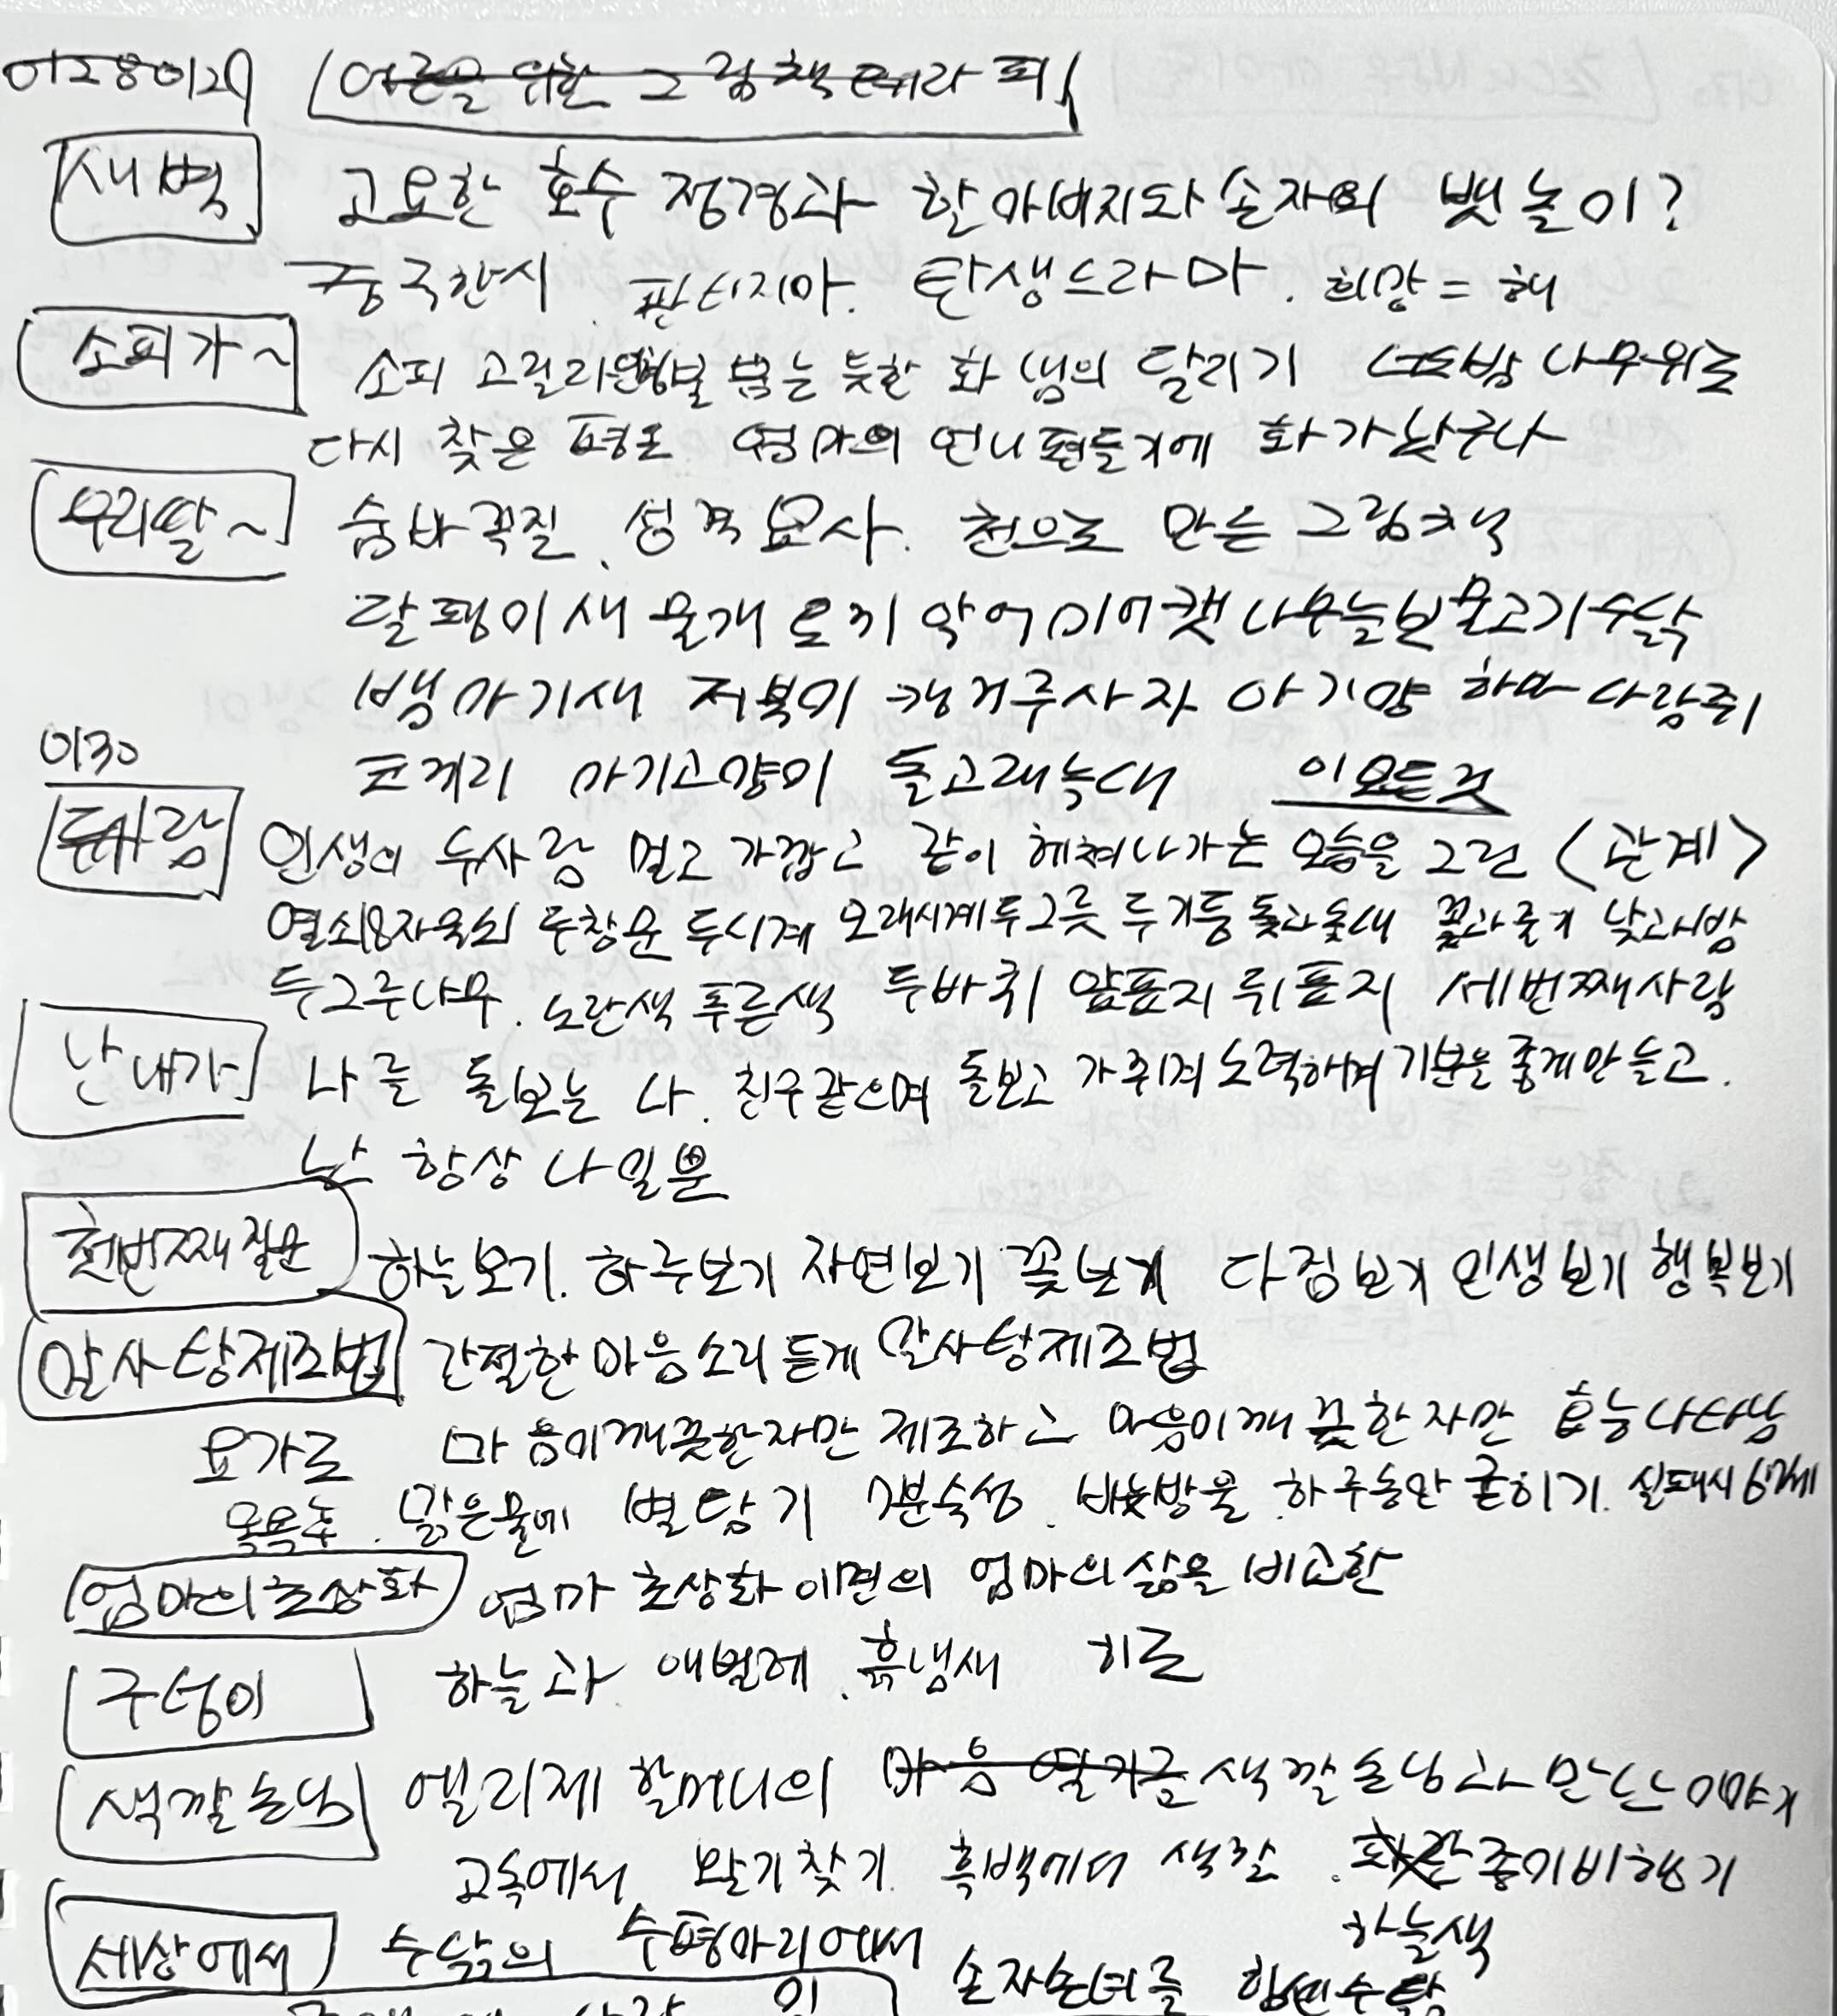 어른을 위한 그림책테라피
새벽 고요한 호수 정경과 할아버지와 손자의 뱃놀이?
중국한시. 판타지아. 탄생드라마. 희망 = 해
소피가~ 소피 고릴라 불 뿜는 듯한 화 냄의 달리기 나무위로
다시 찾은 평온 엄마의 언니편들기에 화가났구나
우리딸~ 숨바꼭질. 성격묘사. 천으로 만든 그림책
달팽이 새 물개 토끼 악어 미어캣 나무늘보 물고기 수탉
뱀 아기새 캥거루 사자 아기양 하마 다람쥐
0130 코끼리 아기고양이 돌고래 늑대 이모든것
두사람 인생의 두사람 멀고 가깝고 같이 헤쳐나가는 모습을 그린 <관계>
열쇠와자물쇠 두창문 두시계 모래시계 두그릇 두기둥 돛과돛대 꽃과줄기 낮과밤
두그루나무. 노란색 푸른색 두바퀴 앞표지 뒤표지 세번째사람
난 내가 나를 돌보는 나. 친구같으며 돌보고 가꾸며 노력하며 기분을 좋게만들고.
난 항상 나일뿐
첫번째질문 하늘보기. 하루보기 자연보기 꽃보기 다짐보기 인생보기 행복보기
알사탕제조법 간절한 마음소리 듣게 알사탕제조법
요가로 마음이깨끗한자만 제조하고 마음이깨끗한자만 효능나타남
목욕후. 맑은물에 별담기 7분숙성. 하루동안 굳히기. 실패시
엄마의초상화 엄마 초상화 이면의 엄마의 삶을 비교한
구덩이 하늘과 애벌레. 흙냄새 히로
색깔손님 엘리제 할머니의 마음 열기를 색깔손님과 만난이야기
고독에서 활기찾기 흑백에서 색깔. 종이비행기
하늘색
세상에서 수탉의 수평아리에서 손자손녀를 수탉